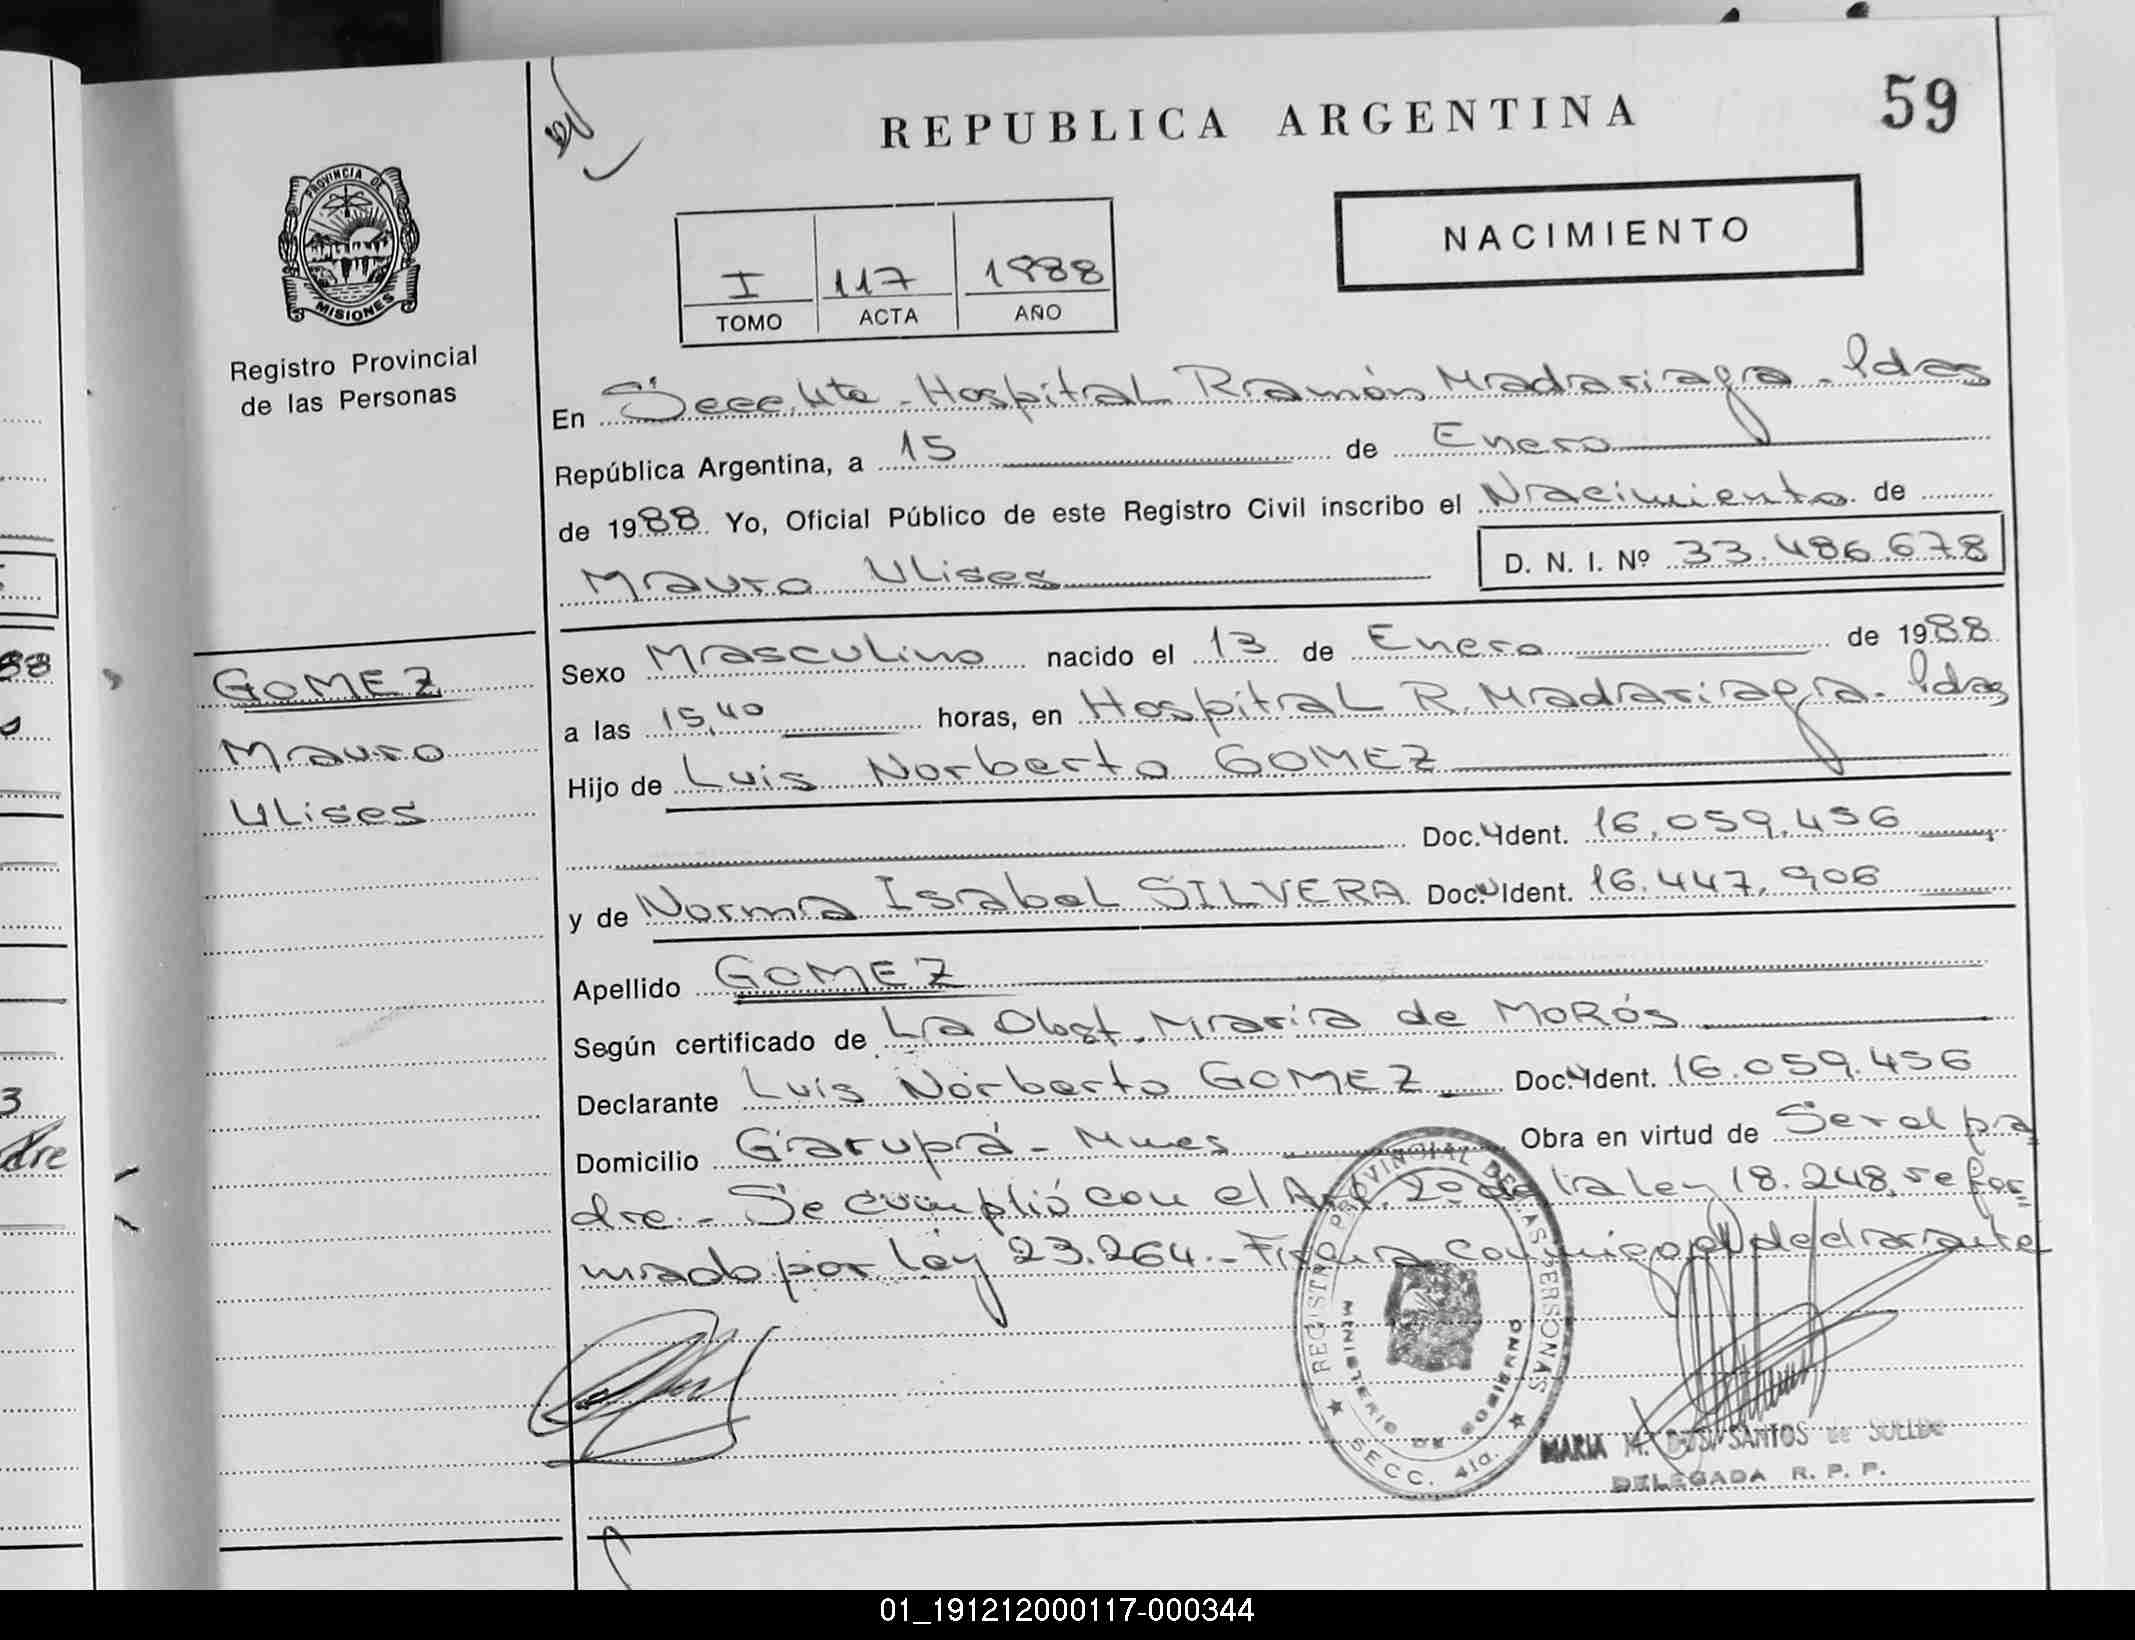 REPUBLICA ARGENTINA
59
PROVINCIA DE
MISIONES
Registro Provincial
de las Personas
NACIMIENTO
I 117 1988
TOMO ACTA AÑO
En Secc. 4ta - Hospital Ramón Madariaga - Pdas
República Argentina, a 15 de Enero
de 1988. Yo, Oficial Público de este Registro Civil inscribo el Nacimiento de
Mauro Ulises D. N. I. Nº 33.486.678
GOMEZ
Mauro
Ulises
Sexo Masculino nacido el 13 de Enero de 1988
a las 15,40 horas, en Hospital R. Madariaga - Pdas
Hijo de Luis Norberto GOMEZ
Doc. Ident. 16.059.456
y de Norma Isabel SILVERA Doc. Ident. 16.447.906
Apellido GOMEZ
Según certificado de La Obst. María de MoRós
Declarante Luis Norberto GOMEZ Doc. Ident. 16.059.456
Domicilio Garupá - Mnes Obra en virtud de Ser el pa
dre. - Se cumplió con el Art. 2º de la Ley 18.248, refor
mado por ley 23.264. - Firma conmigo el declarante
REGISTRO PROVINCIAL DE LAS PERSONAS
MINISTERIO DE GOBIERNO
SECC. 4ta.
MARIA M. DOS SANTOS de
DELEGADA R. P. P.
01_191212000117-000344